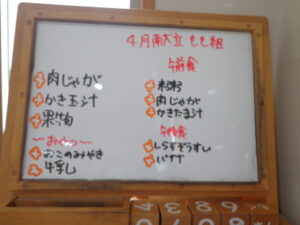 4月献立 もも組
肉じゃが
かき玉汁
果物
〜おやつ〜
おこのみやき
牛乳
午前食
米粥
肉じゃが
かきたま汁
午後食
しらすぞうすい
バナナ